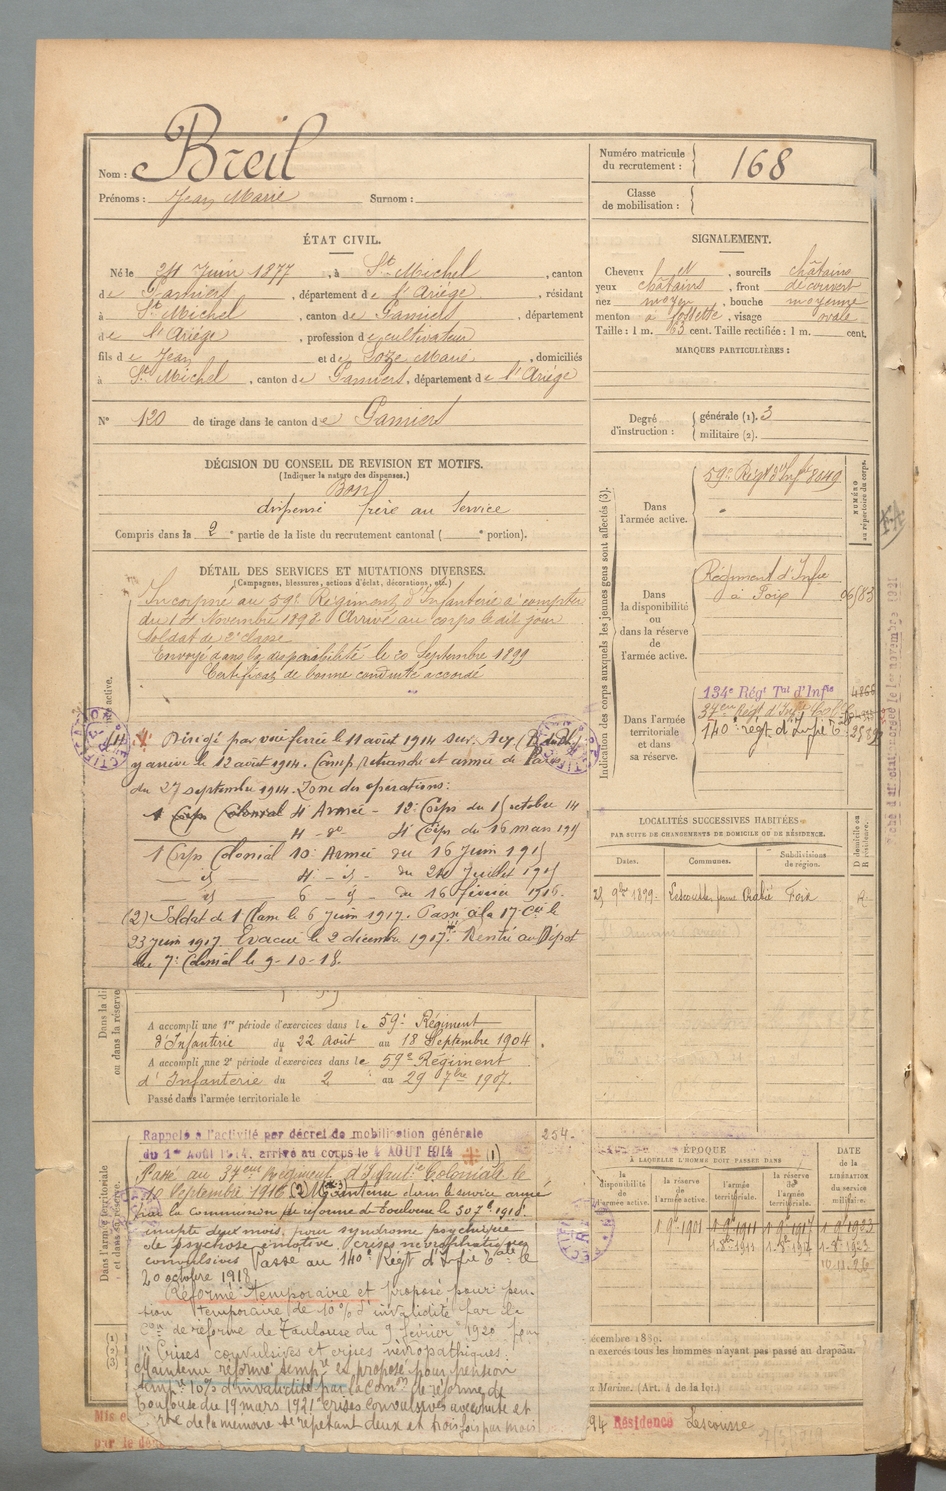 Nom : Breil
Prénoms : Jean Marie Surnom :
Numéro matricule du recrutement : 168
Classe de mobilisation :
ÉTAT CIVIL.
Né le 24 Juin 1877, à St Michel, canton
de Pamiers, département de l'Ariége, résidant
à St Michel, canton de Pamiers, département
de l'Ariége, profession de cultivateur
fils de Jean et de Soze Marie, domiciliés
à St Michel, canton de Pamiers, département de l'Ariége
N° 120 de tirage dans le canton de Pamiers
DÉCISION DU CONSEIL DE REVISION ET MOTIFS.
(Indiquer la nature des dispenses.)
Bon
dispensé frère au Service
Compris dans la 2e partie de la liste du recrutement cantonal ( e portion).
DÉTAIL DES SERVICES ET MUTATIONS DIVERSES.
(Campagnes, blessures, actions d'éclat, décorations, etc.)
Incorporé au 59e Régiment d'Infanterie à compter
du 14 Novembre 1898 Arrivé au corps le dit jour
Soldat de 2e classe
Envoyé dans la disponibilité le 20 Septembre 1899
Certificat de bonne conduite accordé
(1) Dirigé par voie ferrée le 11 août 1914 sur
y arrive le 12 août 1914. Camp retranché et armée de Paris
du 27 septembre 1914. Zone des opérations :
1 Corps Colonial 4 Armée - 12e Corps du 15 octobre 14
4 - de 4e Corps du 16 mars 1915
1 Corps Colonial 10e Armée du 16 Juin 1915
4 - du 24 Juillet 1915
6 du 16 février 1916.
(2) Soldat de 1 Classe le 6 juin 1917. Passé à la 17 Cie le
23 juin 1917. Evacué le 2 décembre 1917. Rentré au Dépot
du 7e Colonial le 9-10-18.
A accompli une 1re période d'exercices dans le 59e Régiment
d'Infanterie du 22 Août au 18 Septembre 1904
A accompli une 2e période d'exercices dans le 59e Régiment
d'Infanterie du 2 au 29 7bre 1907.
Passé dans l'armée territoriale le
Rappelé à l'activité par décret de mobilisation générale
du 1er Août 1914, arrivé au corps le 4 AOUT 1914 (1)
254.
Passé au 37eme Régiment d'Infantie Coloniale le
10 Septembre 1914 (2) Maintenu dans le service armé
par la commission de réforme de Toulouse le 30 7bre 1918
inapte deux mois, pour syndrome psychique
de psychose émotive, crises névropathiques
convulsives Passé au 140e Régt d'Infie Tale le
20 octobre 1918
Réformé temporaire et proposé pour pen-
sion temporaire de 10% d'invalidité par la
Con de réforme de Toulouse du 9 février 1920 pour
Crises convulsives et crises névropathiques.
Maintenu réformé tempre et proposé pour pension
tempe 10% d'invalidité par la Comon de réforme de
Toulouse du 19 mars 1921 crises convulsives avec chute et
perte de la mémoire se répétant deux et trois fois par mois
SIGNALEMENT.
Cheveux et, sourcils châtains
yeux châtains, front découvert
nez moyen, bouche moyenne
menton à fossette, visage ovale
Taille : 1 m. 63 cent. Taille rectifiée : 1 m. cent.
MARQUES PARTICULIÈRES :
Degré d'instruction : générale (1). 3
militaire (2).
Indication des corps auxquels les jeunes gens sont affectés (3).
NUMÉRO au répertoire du corps.
Dans l'armée active. 59e Régt d'Infie 8649
Dans la disponibilité ou dans la réserve de l'armée active. Régiment d'Infie à Foix
Dans l'armée territoriale et dans sa réserve. 134e Régt Tal d'Infie
37eme Régt d'Infie Cole
140e régt d'Infie Tle
LOCALITÉS SUCCESSIVES HABITÉES
PAR SUITE DE CHANGEMENTS DE DOMICILE OU DE RÉSIDENCE.
Dates. Communes. Subdivisions de région. D domicile ou R résidence.
25 9bre 1899 Lescousse Foix R
ÉPOQUE
À LAQUELLE L'HOMME DOIT PASSER DANS
DATE de la LIBÉRATION du service militaire.
la disponibilité de l'armée active. la réserve de l'armée active. l'armée territoriale. la réserve de l'armée territoriale.
1 9bre 1901 1 9bre 1911 1 9bre 1917 1 9bre 1923
1-8bre 1911 1-8bre 1917 1-8bre 1923
10-11-26
Dans l'armée territoriale et dans sa réserve.
décembre 1889.
exercés tous les hommes n'ayant pas passé au drapeau.
Marine. (Art. 4 de la loi.)
94 Résidence Lescousse
Mis e
par le dé